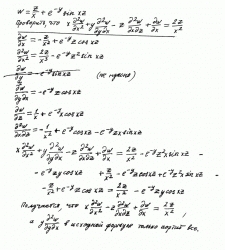 w = z/x + e^{-y} sin xz
Проверить, что x ∂²w/∂x² + y ∂²w/∂y∂x - z ∂²w/∂x∂z + ∂w/∂x = 2z/x²
∂w/∂x = -z/x² + e^{-y} z cos xz
∂²w/∂x² = 2z/x³ - e^{-y} z² sin xz
∂w/∂y = -e^{-y} sin xz (не нужно)
∂²w/∂y∂x = -e^{-y} z cos xz
∂w/∂z = 1/x + e^{-y} x cos xz
∂²w/∂x∂z = -1/x² + e^{-y} cos xz - e^{-y} zx sin xz
x ∂²w/∂x² + y ∂²w/∂y∂x - z ∂²w/∂x∂z + ∂w/∂x = 2z/x² - e^{-y} z² x sin xz -
- e^{-y} zy cos xz + z/x² - e^{-y} z cos xz + e^{-y} z² x sin xz -
- z/x² + e^{-y} z cos xz = 2z/x² - e^{-y} zy cos xz
Получается, что x ∂²w/∂x² - z ∂²w/∂x∂z + ∂w/∂x = 2z/x²,
а y ∂²w/∂y∂x в исходной формуле только портит все.